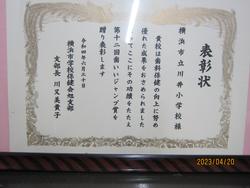 表彰状
横浜市立川井小学校様
貴校は歯科保健の向上に努め
優れた成果をおさめられました
よってここにその功績をたたえ
第十二回歯いいジャンプ賞を
贈り表彰します
令和四年六月三十日
横浜市学校保健会旭支部
支部長 川又美貴子
2023/04/20